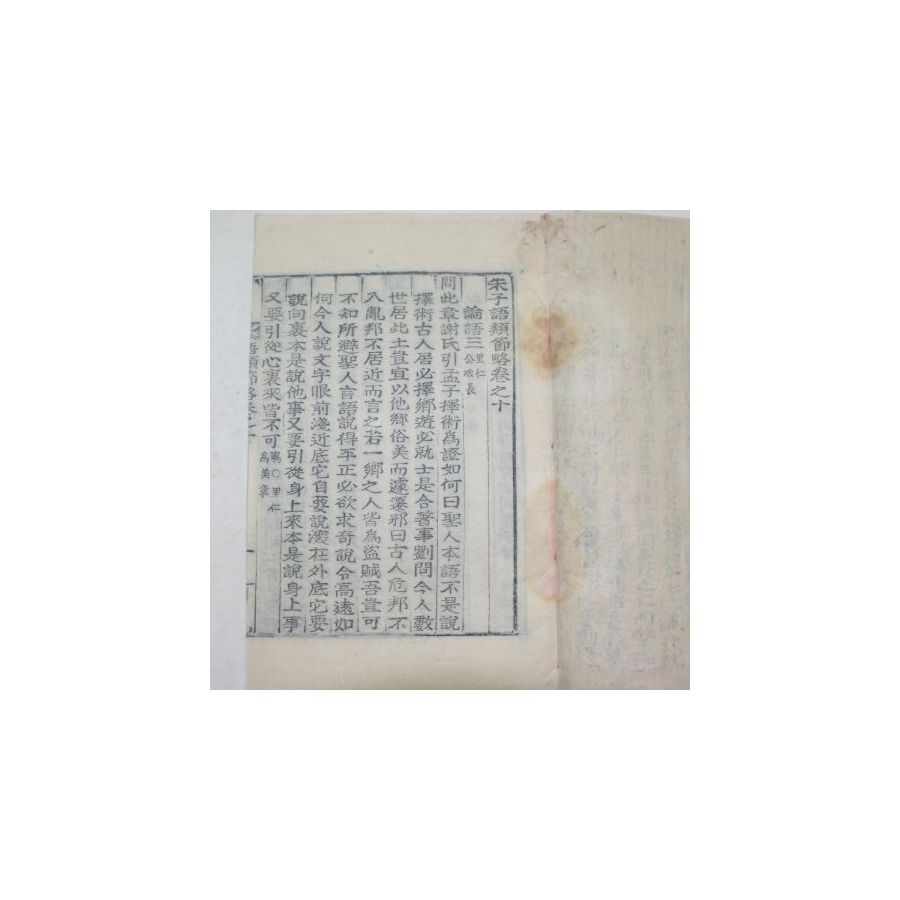 朱子語類節略卷之十
論語三 里仁 公冶長
問此章謝氏引孟子擇術為證如何曰聖人本語不是說
擇術古人居必擇鄉遊必就士是合著事劉問今人數
世居此土豈宜以他鄉俗美而遽遷邪曰古人危邦不
入亂邦不居近而言之若一鄉之人皆為盜賊吾豈可
不知所避聖人言語說得平正必欲求奇說令高遠如
何今人說文字眼前淺近底它自要說深在外底它要
說向裏本是說他事又要引從身上來本是說身上事
又要引從心裏來皆不可 㝢○里仁 為美章
語類節略卷之十